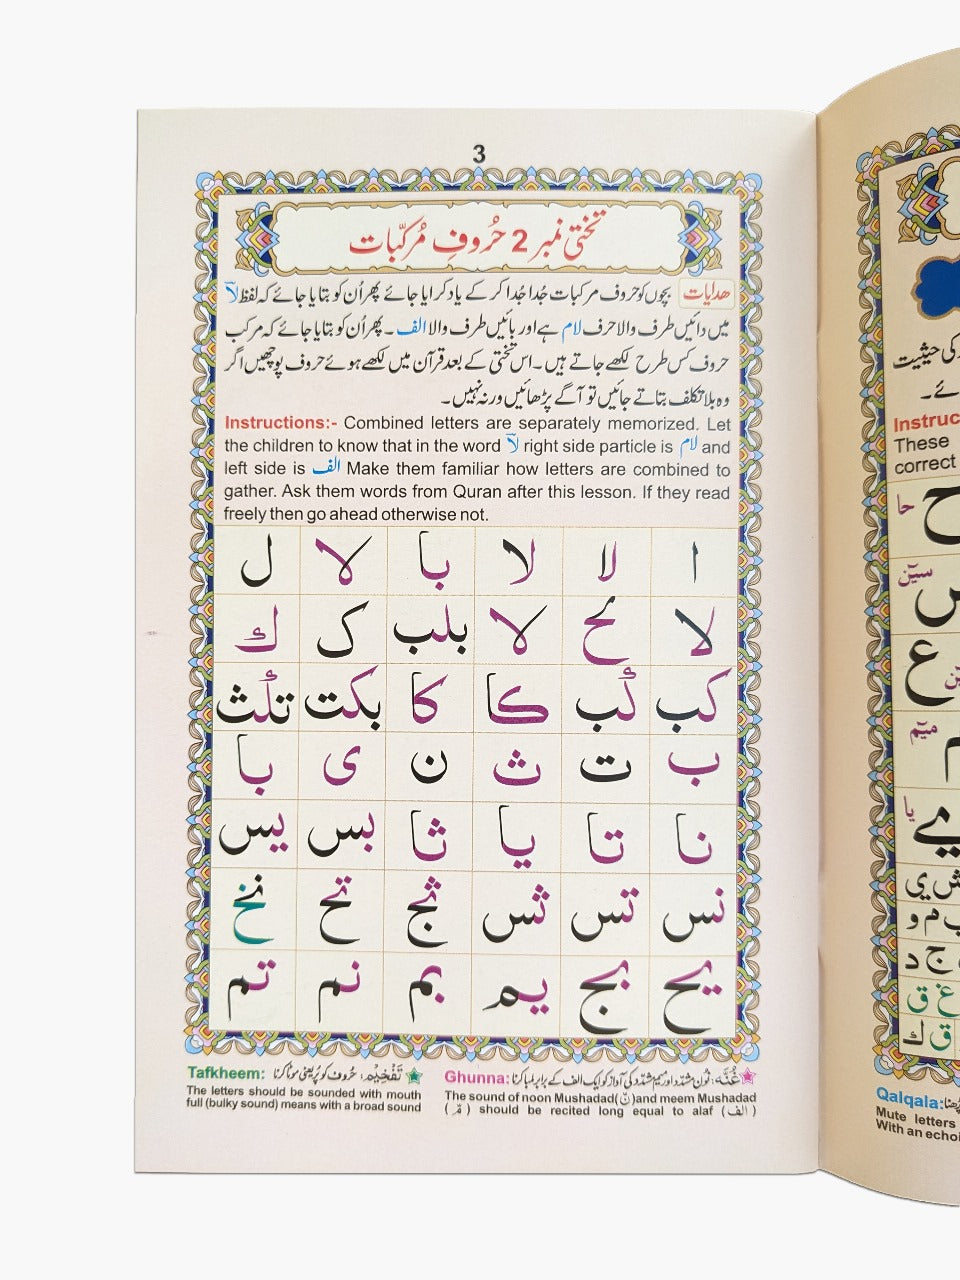 3
تختی نمبر 2 حُروفِ مُرکّبات
ھدایات بچوں کو حروف مرکبات جُدا جُدا کر کے یاد کرایا جائے پھر اُن کو بتایا جائے کہ لفظ لآ
میں دائیں طرف والا حرف لام ہے اور بائیں طرف والا الف ۔ پھر اُن کو بتایا جائے کہ مرکب
حروف کس طرح لکھے جاتے ہیں ۔ اس تختی کے بعد قرآن میں لکھے ہوئے حروف پوچھیں اگر
وہ بلا تکلف بتاتے جائیں تو آگے پڑھائیں ورنہ نہیں ۔
Instructions:- Combined letters are separately memorized. Let
the children to know that in the word لآ right side particle is لام and
left side is الف Make them familiar how letters are combined to
gather. Ask them words from Quran after this lesson. If they read
freely then go ahead otherwise not.
ا لا لا با لا ل
لا لح لا بلب ک ك
کب لب کا کا بکت تلث
ب ت ث ن ی با
نا تا یا ثا بس یس
نس تس ثس ثج تح نخ
یح بج یم بم نم تم
Tafkheem: تَفْخِیْم: حُروف کو پُر یعنی موٹا کرنا
The letters should be sounded with mouth
full (bulky sound) means with a broad sound
Ghunna: غُنَّه: نُون مشدّد اور میم مشدّد کی آواز کو ایک الف کے برابر لمبا کرنا
The sound of noon Mushadad(نّ)and meem Mushadad
(مّ) should be recited long equal to alaf (الف)
کی حیثیت
ئے۔
Instruc
These
correct
ح حا
س سین
ع
م میم
ے یا
ش ی
ب م و
ج د
غ ق
ق ك
Qalqala:
Mute letters
With an echoi